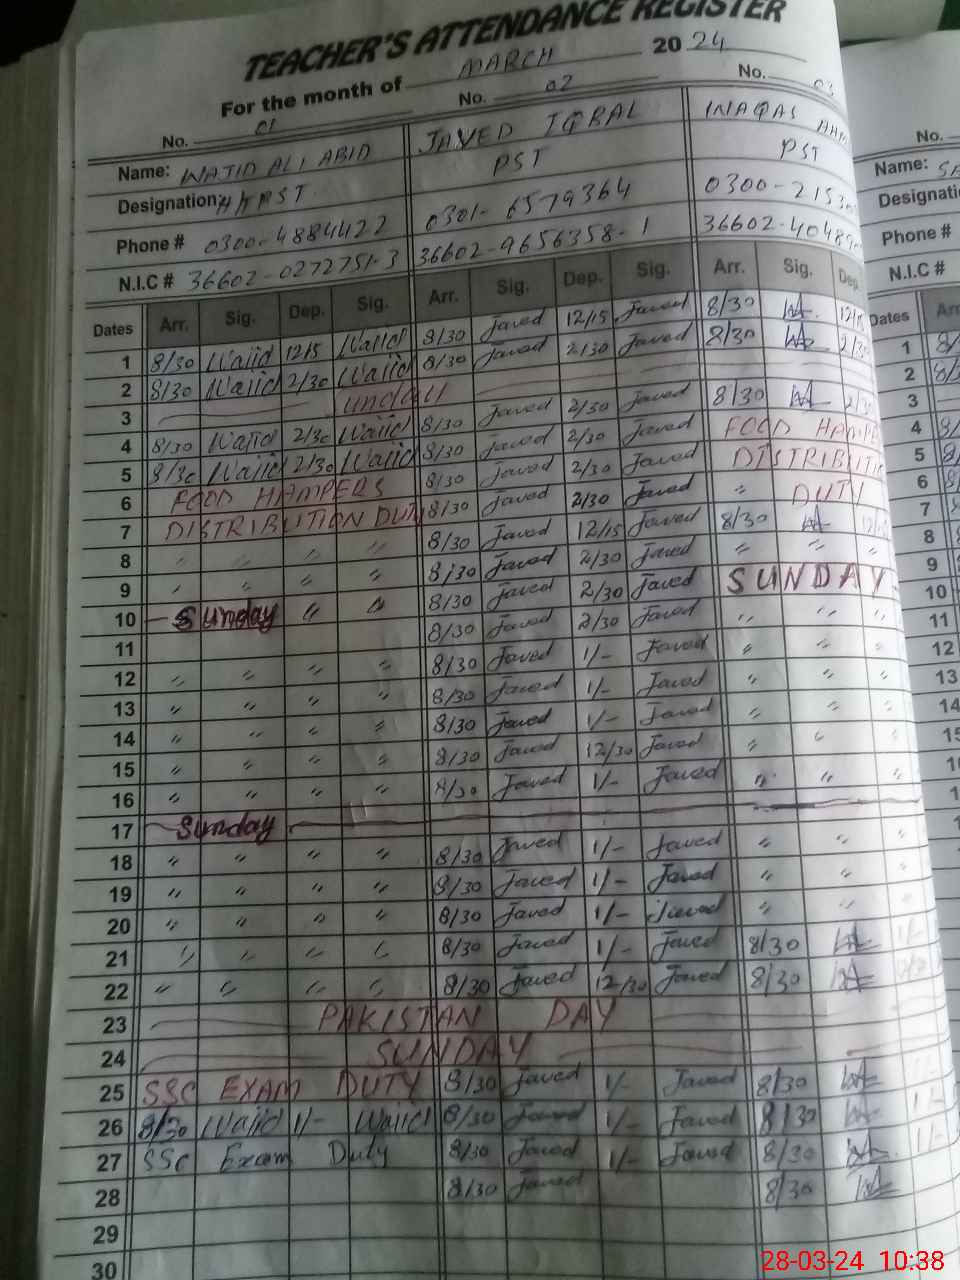 TEACHER'S ATTENDANCE REGISTER
For the month of MARCH 20 24
No. 01 No. 02 No. 03 No.
Name: WAJID ALI ABID JAVED IQBAL WAQAS Name:
Designation: PST PST PST
Phone # 0300-4884422 0301-6579364 0300-2153 Phone #
N.I.C # 36602-0272751-3 36602-9656358-1 36602-4048 N.I.C #
Dates Arr. Sig. Dep. Sig. Arr. Sig. Dep. Sig. Arr. Sig. Dep. Dates
1 8/30 Wajid 12/15 Wajid 8/30 Javed 12/15 Javed 8/30 12/15 1
2 8/30 Wajid 2/30 Wajid 8/30 Javed 2/30 Javed 8/30 2/30 2
3 Sunday 3
4 8/30 Wajid 2/30 Wajid 8/30 Javed 2/30 Javed 8/30 2/30 4
5 8/30 Wajid 2/30 Wajid 8/30 Javed 2/30 Javed FOOD 5
6 FOOD HAMPERS 8/30 Javed 2/30 Javed 6
7 DISTRIBUTION DUTY 8/30 Javed 2/30 Javed " DUTY 7
8 " " " " 8/30 Javed 12/15 Javed 8/30 8
9 " " " " 8/30 Javed 2/30 Javed " " " 9
10 Sunday " " 8/30 Javed 2/30 Javed SUNDAY 10
11 8/30 Javed 2/30 Javed " " " 11
12 " " " " 8/30 Javed 1/- Javed " " " 12
13 " " " " 8/30 Javed 1/- Javed " " " 13
14 " " " " 8/30 Javed 1/- Javed " " " 14
15 " " " " 8/30 Javed 12/30 Javed " " " 15
16 " " " " 8/30 Javed 1/- Javed " " "
17 Sunday
18 " " " " 8/30 Javed 1/- Javed " " "
19 " " " " 8/30 Javed 1/- Javed " " "
20 " " " " 8/30 Javed 1/- Javed " " "
21 " " " " 8/30 Javed 1/- Javed 8/30 1/-
22 " " " " 8/30 Javed 12/30 Javed 8/30
23 PAKISTAN DAY
24 SUNDAY
25 SSC EXAM DUTY 8/30 Javed 1/- Javed 8/30
26 8/30 Wajid 1/- Wajid 8/30 Javed 1/- Javed 8/30 1/-
27 SSC Exam Duty 8/30 Javed 1/- Javed 8/30 1/-
28 8/30 Javed 8/30
29
30
28-03-24 10:38